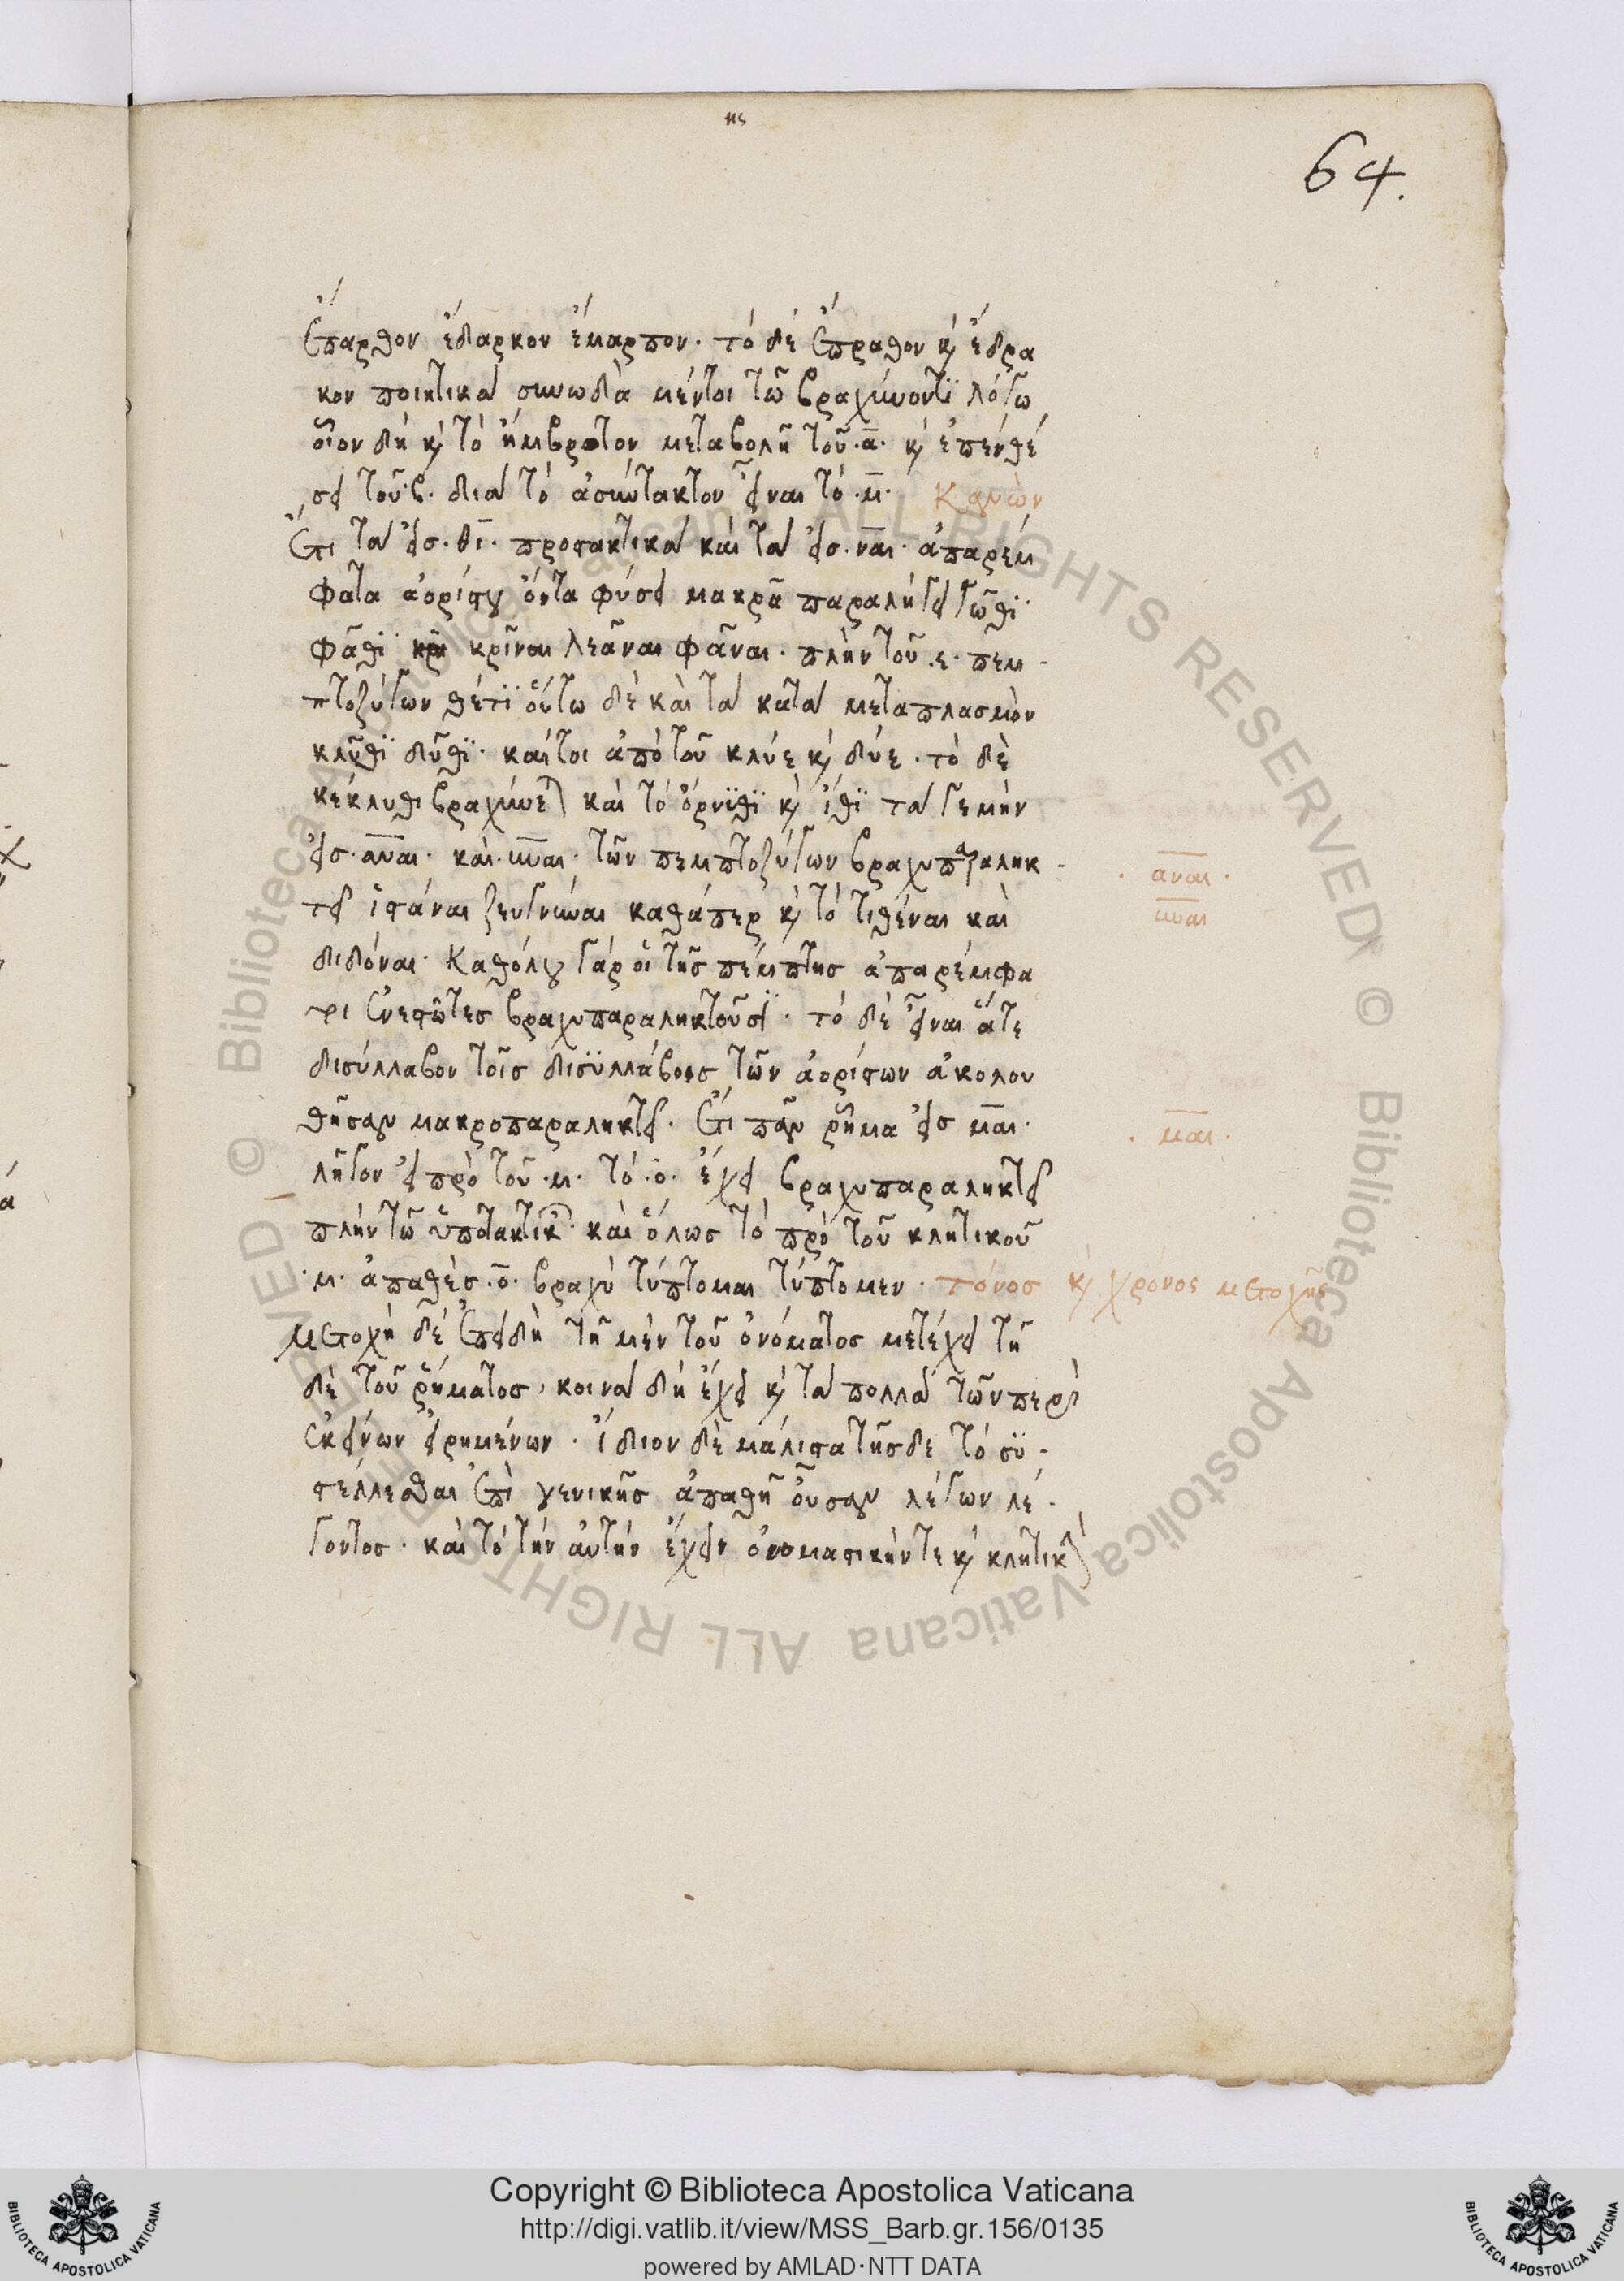 κς
64.
ἔπαρθον ἔδαρκον ἔμαρπον· τὸ δὲ ἔπραθον κ̀ ἔδρα
κον ποιητικὰ συνωδὰ μέντοι τῶ βραχύνοντϊ λόγω
οἷον δὴ κ̀ τὸ ἤμβροτον μεταβολῆ τοῦ ·ᾱ· κ̀ ἐπενθέ
σει τοῦ ·β· διὰ τὸ ἀσύντακτον εἶναι τὸ ·μ̄· Κανὼν
Ἔτι τὰ εἰσ ·θῑ· προστακτικὰ καὶ τὰ εἰσ ·ναι· ἀπαρέμ
φατα ἀορίστου ὄντα φύσει μακρᾶ παραλήγει γνῶθϊ·
φάθϊ κρῖναι λεᾶναι φᾶναι· πλὴν τοῦ ·ε· πεμ-
πτοζύγων θέτϊ οὕτω δὲ καὶ τὰ κατὰ μεταπλασμὸν
κλῦθϊ δῦθϊ· καίτοι ἀπὸ τοῦ κλύε κ̀ δύε· τὸ δὲ
κέκλυθι βραχύνεται καὶ τὸ ὄρνϋθϊ κ̀ ἴθϊ τὰ γε μὴν
εἰσ ·αναι· καὶ ·υναι· τῶν πεμπτοζύγων βραχυπαραληκ-
τεῖ ἱστάναι ζευγνύναι καθάπερ κ̀ τὸ τιθέναι καὶ
διδόναι· Καθόλου γὰρ οἱ τῆσ πέμπτησ ἀπαρέμφα
τοι ἐνεστῶτεσ βραχυπαραληκτοῦσϊ· τὸ δὲ εἶναι ἅτε
δισύλλαβον τοῖσ δισϋλλάβοισ τῶν ἀορίστων ἀκολου
θῆσαν μακροπαραληκτεῖ· Ἔτι πᾶν ῥῆμα εἰσ μαι·
λῆγον εἰ πρὸ τοῦ ·μ· τὸ ·ο· ἔχει βραχυπαραληκτεῖ
πλὴν τῶ ὑποτακτικ καὶ ὅλωσ τὸ πρὸ τοῦ κλητικοῦ
·μ· ἀπαθὲσ ·ο̄· βραχὺ τύπτομαι τύπτομεν· τόνοσ κ̀ χρόνος μετοχῆς
μετοχὴ δὲ ἐπειδὴ τῆ μὲν τοῦ ὀνόματοσ μετέχει τῆ
δὲ τοῦ ῥήματοσ, κοινὰ δὴ ἔχει κ̀ τὰ πολλὰ τῶν περὶ
ἐκείνων εἰρημένων· ἴδιον δὲ μάλιστα τῆσδε τὸ σϋ-
στέλλεσθαι ἐπὶ γενικῆσ ἀπαθῆ οὖσαν λέγων λέ-
γοντοσ· καὶ τὸ τὴν αὐτὴν ἔχειν ὀνομαστικήν τε κ̀ κλητικὴν
·αναι·
υναι
·μαι·
Copyright © Biblioteca Apostolica Vaticana
http://digi.vatlib.it/view/MSS_Barb.gr.156/0135
powered by AMLAD·NTT DATA